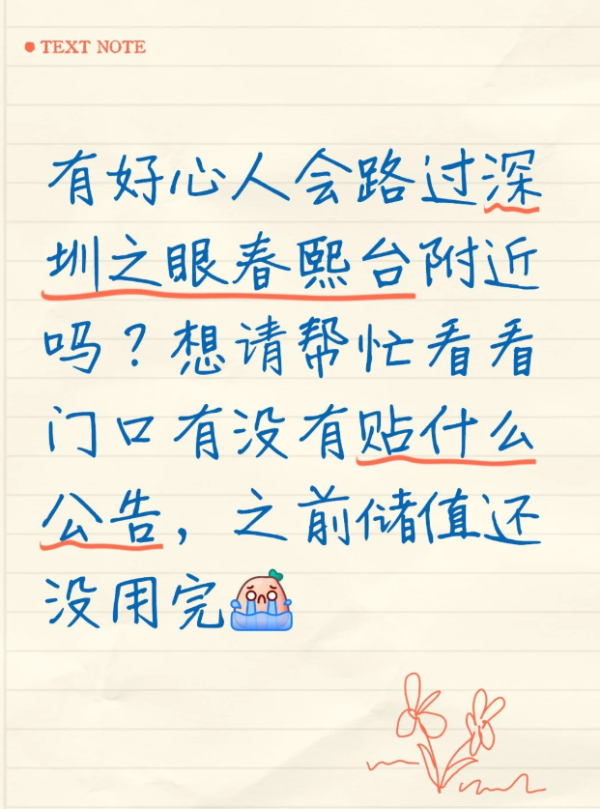 TEXT NOTE
有好心人会路过深
圳之眼春熙台附近
吗？想请帮忙看看
门口有没有贴什么
公告，之前储值还
没用完